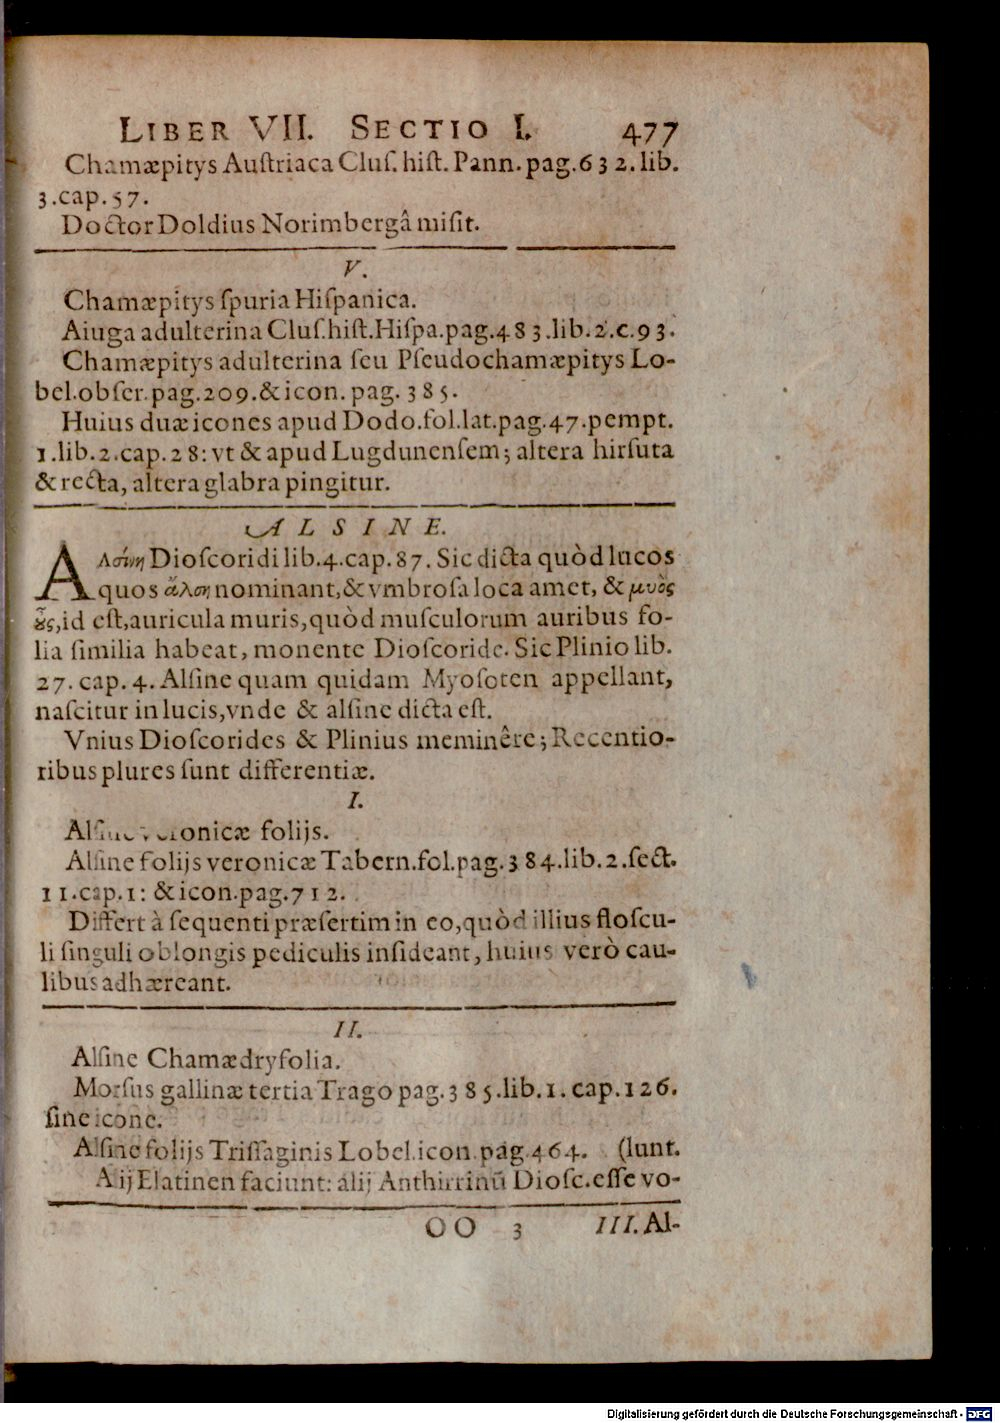 LIBER VII. SECTIO I. 477
Chamæpitys Auſtriaca Cluſ. hiſt. Pann. pag. 632. lib.
3. cap. 57.
Doctor Doldius Norimbergâ miſit.
V.
Chamæpitys ſpuria Hiſpanica.
Aiuga adulterina Cluſ. hiſt. Hiſpa. pag. 483. lib. 2. c. 93.
Chamæpitys adulterina ſeu Pſeudochamæpitys Lo-
bel. obſer. pag. 209. & icon. pag. 385.
Huius duæ icones apud Dodo. fol. lat. pag. 47. pempt.
1. lib. 2. cap. 28: vt & apud Lugdunenſem; altera hirſuta
& recta, altera glabra pingitur.
ALSINE.
Ἀλσίνη Dioſcoridi lib. 4. cap. 87. Sic dicta quòd lucos
quos ἄλση nominant, & vmbroſa loca amet, & μυὸς
ὦς, id eſt, auricula muris, quòd muſculorum auribus fo-
lia ſimilia habeat, monente Dioſcoride. Sic Plinio lib.
27. cap. 4. Alſine quam quidam Myoſoten appellant,
naſcitur in lucis, vnde & alſine dicta eſt.
Vnius Dioſcorides & Plinius meminêre; Recentio-
ribus plures ſunt differentiæ.
I.
Alſine veronicæ folijs.
Alſine folijs veronicæ Tabern. fol. pag. 384. lib. 2. ſect.
11. cap. 1: & icon. pag. 712.
Differt à ſequenti præſertim in eo, quòd illius floſcu-
li ſinguli oblongis pediculis inſideant, huius verò cau-
libus adhæreant.
II.
Alſine Chamædryfolia.
Morſus gallinæ tertia Trago pag. 385. lib. 1. cap. 126.
ſine icone.
Alſine folijs Triſſaginis Lobel. icon. pag. 464. (lunt.
Aij Elatinen faciunt: alij Anthirrinũ Dioſc. eſſe vo-
OO 3 III. Al-
Digitalisierung gefördert durch die Deutsche Forschungsgemeinschaft - DFG